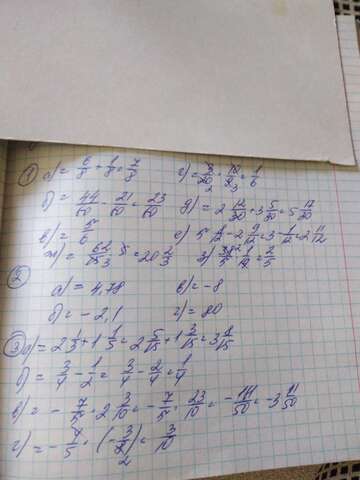 ① а) = 6/8 + 1/8 = 7/8 г) = 3/20 · 10/9 = 1/6
б) = 44/60 - 21/60 = 23/60 д) = 2 12/20 + 3 5/20 = 5 17/20
в) = 5/6 е) 5 8/12 - 2 9/12 = 3 - 1/12 = 2 11/12
ж) = 62/15 · 5 = 20 2/3 з) 38/5 · 1/19 = 2/5
② а) = 4,78 в) = -8
б) = -2,1 г) = 80
③ а) = 2 1/3 + 1 1/5 = 2 5/15 + 1 3/15 = 3 8/15
б) = 3/4 - 1/2 = 3/4 - 2/4 = 1/4
в) = - 7/5 · 2 3/10 = - 7/5 · 23/10 = - 161/50 = -3 11/50
г) = - 1/5 · (- 3/2) = 3/10